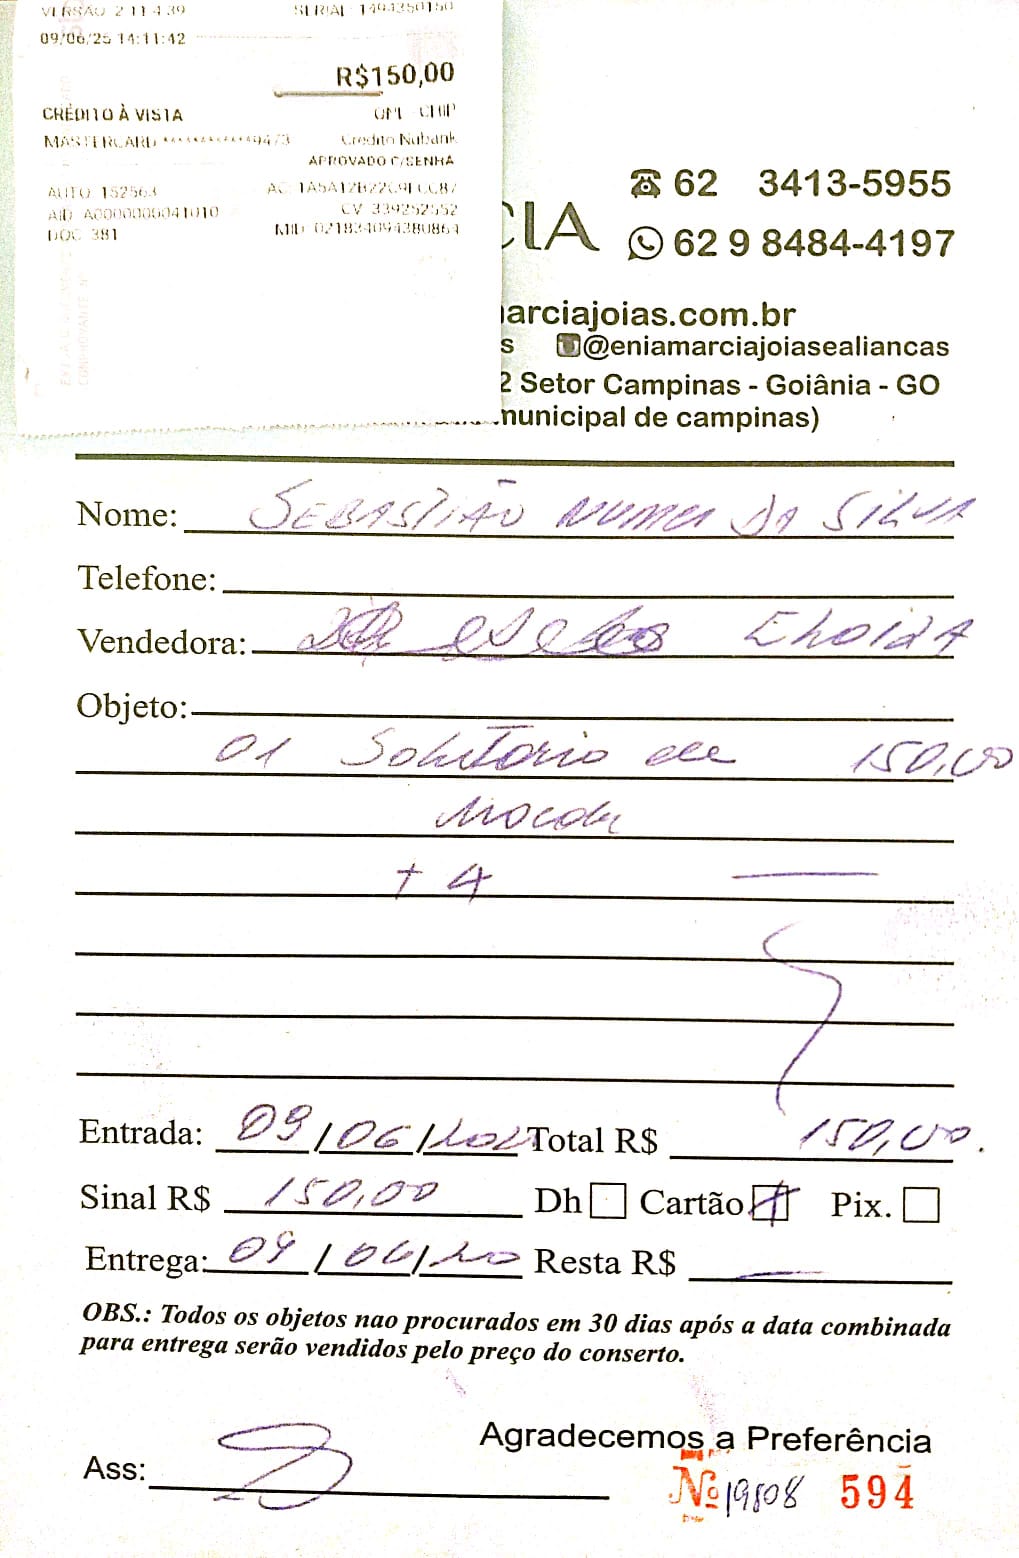 VERSÃO 2.11.4.39 SERIAL 1494350150
09/06/25 14:11:42
R$150,00
CRÉDITO À VISTA
MASTERCARD ************9473 Credito Nubank
APROVADO C/SENHA
AUTO 152563
AID A0000000041010 CV 339252552
DOC 381 MID 021834094380864
62 3413-5955
CIA 62 9 8484-4197
arciajoias.com.br
s @eniamarciajoiasealiancas
2 Setor Campinas - Goiânia - GO
municipal de campinas)
Nome: SEBASTIÃO NUNES DA SILVA
Telefone:
Vendedora:
Objeto:
01 Solitario de 150,00
+ 4
Entrada: 09/06/202 Total R$ 150,00.
Sinal R$ 150,00 Dh Cartão Pix.
Entrega: 09/06/20 Resta R$
OBS.: Todos os objetos nao procurados em 30 dias após a data combinada
para entrega serão vendidos pelo preço do conserto.
Agradecemos a Preferência
Ass:
Nº 19808 594